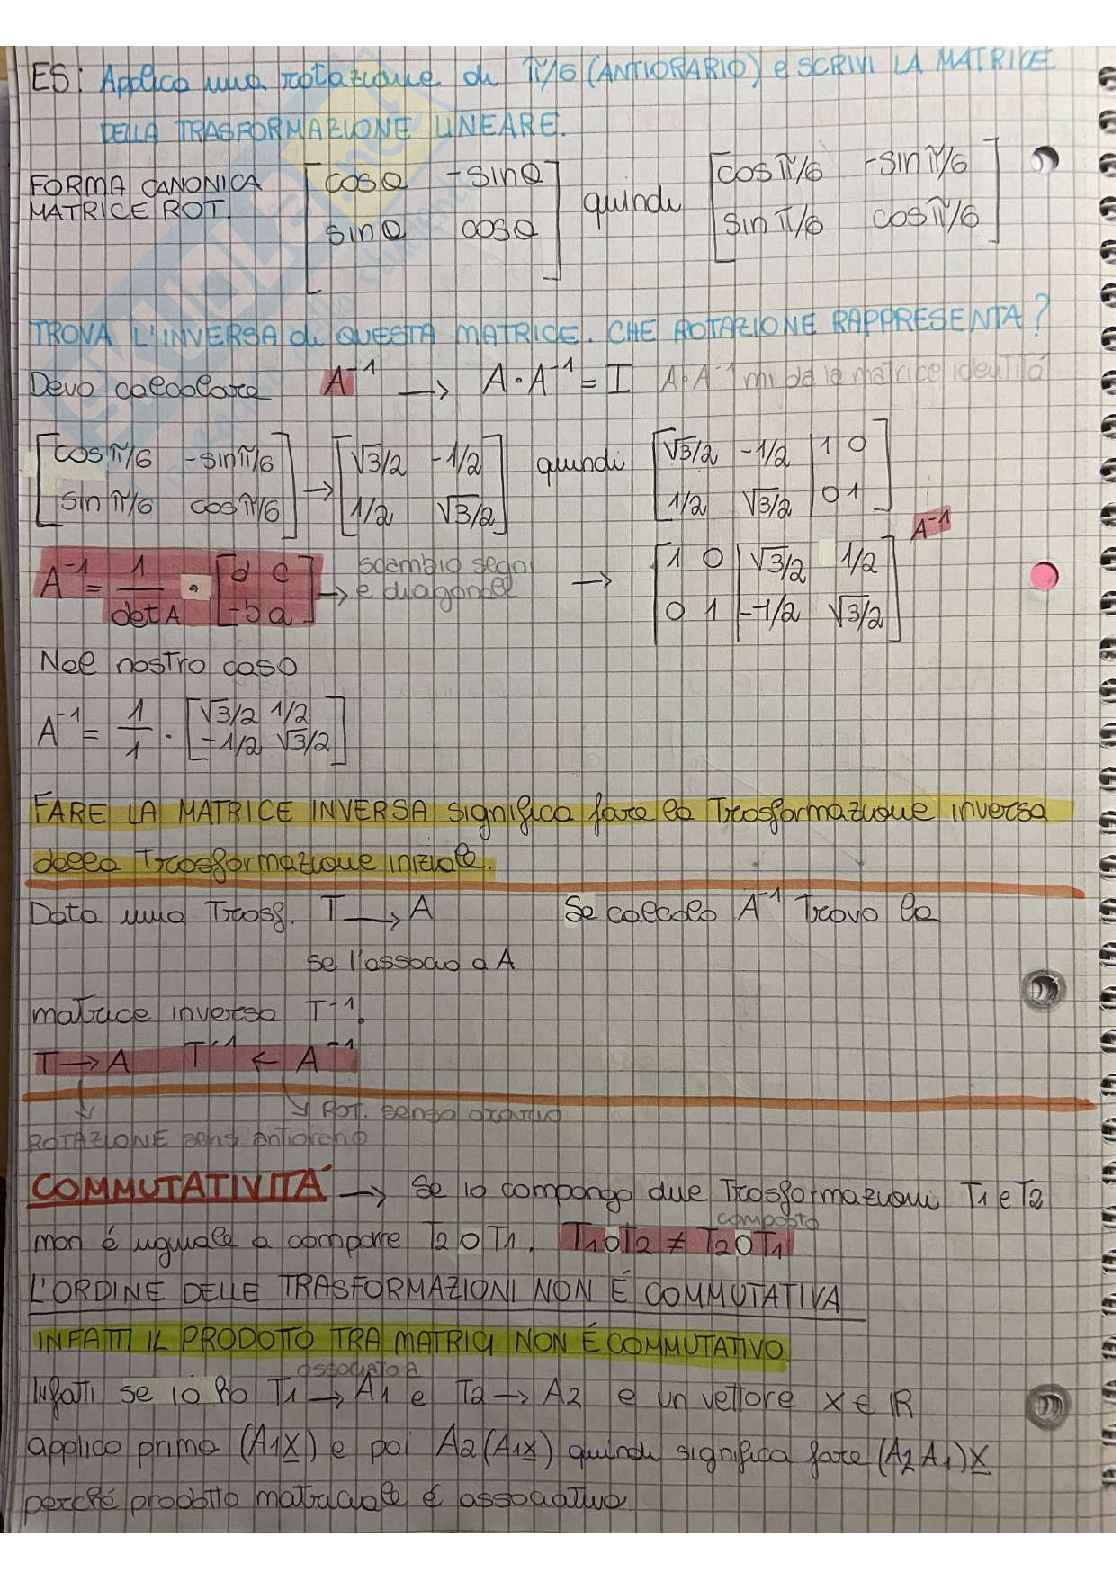 ES: Applica una rotazione di π/6 (ANTIORARIO) e SCRIVI LA MATRICE
DELLA TRASFORMAZIONE LINEARE.
FORMA CANONICA MATRICE ROT. [cosθ -sinθ sinθ cosθ] quindi [cosπ/6 -sinπ/6 sinπ/6 cosπ/6]
TROVA L'INVERSA di QUESTA MATRICE. CHE ROTAZIONE RAPPRESENTA?
Devo calcolare A⁻¹ → A·A⁻¹ = I A·A⁻¹ mi dà la matrice identità
[cosπ/6 -sinπ/6 sinπ/6 cosπ/6] → [√3/2 -1/2 1/2 √3/2] quindi [√3/2 -1/2 | 1 0 1/2 √3/2 | 0 1]
A⁻¹ = 1/detA · [d c -b a] → scambio segni e diagonale → [1 0 | √3/2 1/2 0 1 | -1/2 √3/2] A⁻¹
Nel nostro caso
A⁻¹ = 1/1 · [√3/2 1/2 -1/2 √3/2]
FARE LA MATRICE INVERSA significa fare la Trasformazione inversa
della Trasformazione iniziale.
Data una Trasf. T → A Se calcolo A⁻¹ Trovo la
se l'associo a A
matrice inversa T⁻¹.
T → A T⁻¹ ← A⁻¹
↘ Rot. senso orario
ROTAZIONE senso antiorario
COMMUTATIVITÁ → Se io compongo due Trasformazioni T1 e T2
composto
non é uguale a comporre T2 O T1. T1 O T2 ≠ T2 O T1
L'ORDINE DELLE TRASFORMAZIONI NON É COMMUTATIVA
INFATTI IL PRODOTTO TRA MATRICI NON É COMMUTATIVO
associato a
Infatti se io ho T1 → A1 e T2 → A2 e un vettore x ∈ R
applico prima (A1x) e poi A2(A1x) quindi significa fare (A2 A1)x
perché prodotto matriciale é associativo